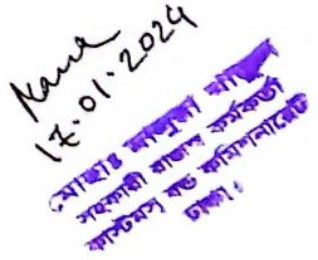 17.01.2024
মোছাঃ
সহকারী রাজস্ব কর্মকর্তা
কাস্টমস বন্ড কমিশনারেট
ঢাকা।